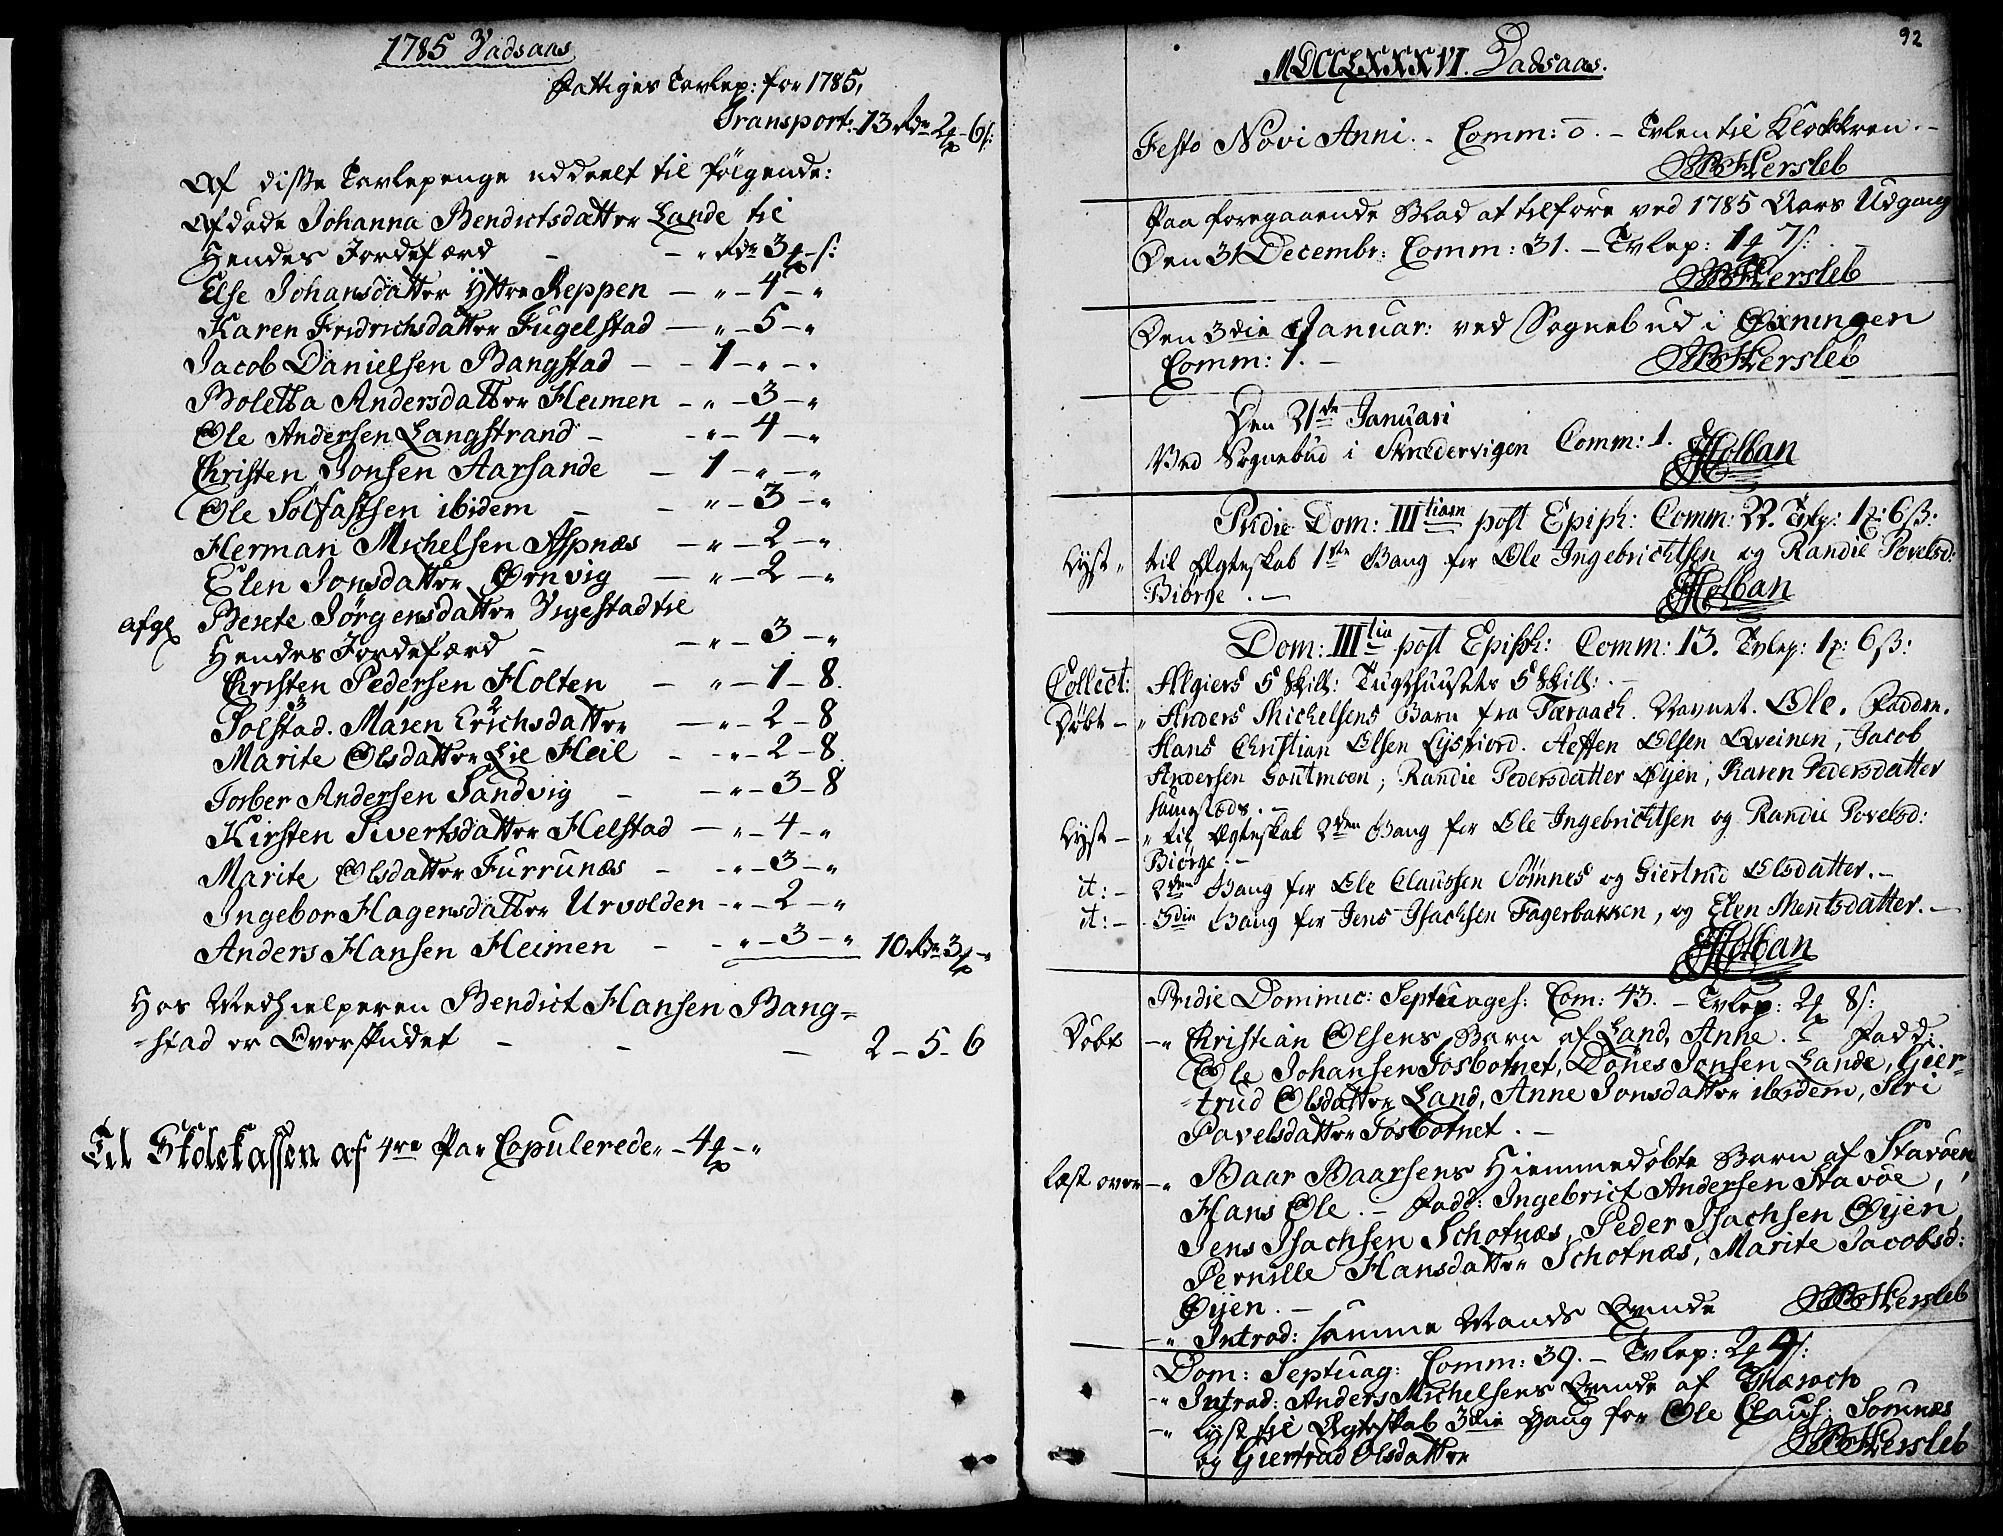 1785 Vadsaas
Fattiges Tavlep: for 1785,
Transport: 13 Rdr 2 ₰ - 6 s:
Af disse Tavlepenge uddeelt til følgende:
Afdøde Johanna Bendictsdatter Lande til
Hendes Jordefærd - - " Rdr 3 ₰ - s:
Else Johansdatter Yttre Reppen - " - 4 - "
Karen Fridrichsdatter Fugelstad - " - 5 - "
Jacob Danielsen Bangstad - - 1 - " - "
Boletta Andersdatter Heimen - " - 3 - "
Ole Andersen Langstrand - - " - 4 - "
Christen Jonsen Aarsande - 1 - " - "
Ole Solfastsen ibidem - - " - 3 - "
Herman Michelsen Aspnæs - " - 2 - "
Elen Jonsdatter Ørnvig - " - 2 - "
afg: Berete Jörgensdatter Vigestad til
Hendes Jordefærd - - " - 3 - "
Christen Pedersen Holten - " - 1 - 8
Solstad. Maren Erichsdatter - " - 2 - 8
Marite Olsdatter Lie Heil - - " - 2 - 8
Torber Andersen Sandvig - - " - 3 - 8
Kirsten Sivertsdatter Helstad - " - 4 - "
Marite Olsdatter Furrunæs - - " - 3 - "
Ingebor Hagensdatter Urvolden - " - 2 - "
Anders Hansen Heimen - - " - 3 - " 10 Rdr 3 ₰ - "
Hos Medhielperen Bendict Hansen Bang=
=stad er Overskudet - - - 2 - 5 - 6
Til Skolekassen af 4re Par Copulerede " - 4 ₰ - "
92
MDCCLXXXVI. Vadsaas.
Festo Novi Anni. - Comm: 0. - Tvlen til Klokkren. -
Hersleb
Paa foregaaende Blad at tilføre ved 1785 Aars Udgang
Den 31 Decembr: Comm: 31. - Tvlep: 1 ₰ 7 s:
Hersleb
Den 3die Januar: ved Sognebud i Øxningen
Comm: 1. -
Hersleb
Den 21de Januari
Ved Sognebud i Skredervigen Comm: 1. Holban
Pridie Dom: III tiam post Epiph: Comm: 22. Tvlp: 1 ₰: 6 ß:
Lyst " til Ægteskab 1ste Gang for Ole Ingebrichtsen og Randie Povelsd:
Biørge. -
Holban
Dom: III tia post Epiph: Comm: 13. Tvlep: 1 ₰: 6 ß:
Collect: Algiers 5 Skill: Tugthusets 5 Skill: -
Døbt - " Anders Michelsens Barn fra Tæraach. Navnet. Ole. Faddre.
Hans Christian Olsen Lysfiord. Aeffen Olsen Qveinen, Jacob
Andersen Goutmoen, Randie Pedersdatter Øijen, Karen Pedersdatter
samestæds. -
Lyst - " til Ægteskab 2den Gang for Ole Ingebrichtsen og Randie Povelsd:
Biørge. -
it: - 2den Gang for Ole Claussen Sømnes og Giertrud Olsdatter. -
it: - 3die Gang for Jens Isachsen Fagerbakken, og Elen Mentsdatter. -
Holban
Pridie Dominic: Septuages: Com: 43. - Tvlep: 2 ₰ 8 s:
Døbt - " Christian Olsens Barn af Land, Anne. - Fadd:
Ole Johansen Fosbotnet, Dönes Jonsen Lande, Gier-
-trud Olsdatter Land, Anne Jonsdatter ibidem, Siri
Pavelsdatter Fosbotnet. -
Læst over - " Baar Baarsens Hiemmedøbte Barn af Stavöen,
Hans Ole. - Fadd: Ingebrict Andersen Stavöe,
Jens Isachsen Schotnæs, Peder Isachsen Øijen,
Pernille Hansdatter Schotnæs, Marite Jacobsd:
Øijen. -
- " Introd: samme Mands Qvinde Hersleb
Dom: Septuag: Comm: 39. - Tvlep: 2 ₰ 4 s:
- " Introd: Anders Michelsens Qvinde af Thæroch
- " Lyst til Ægteskab 3die Gang for Ole Claus: Sömnæs
og Giertrud Olsdatter Hersleb